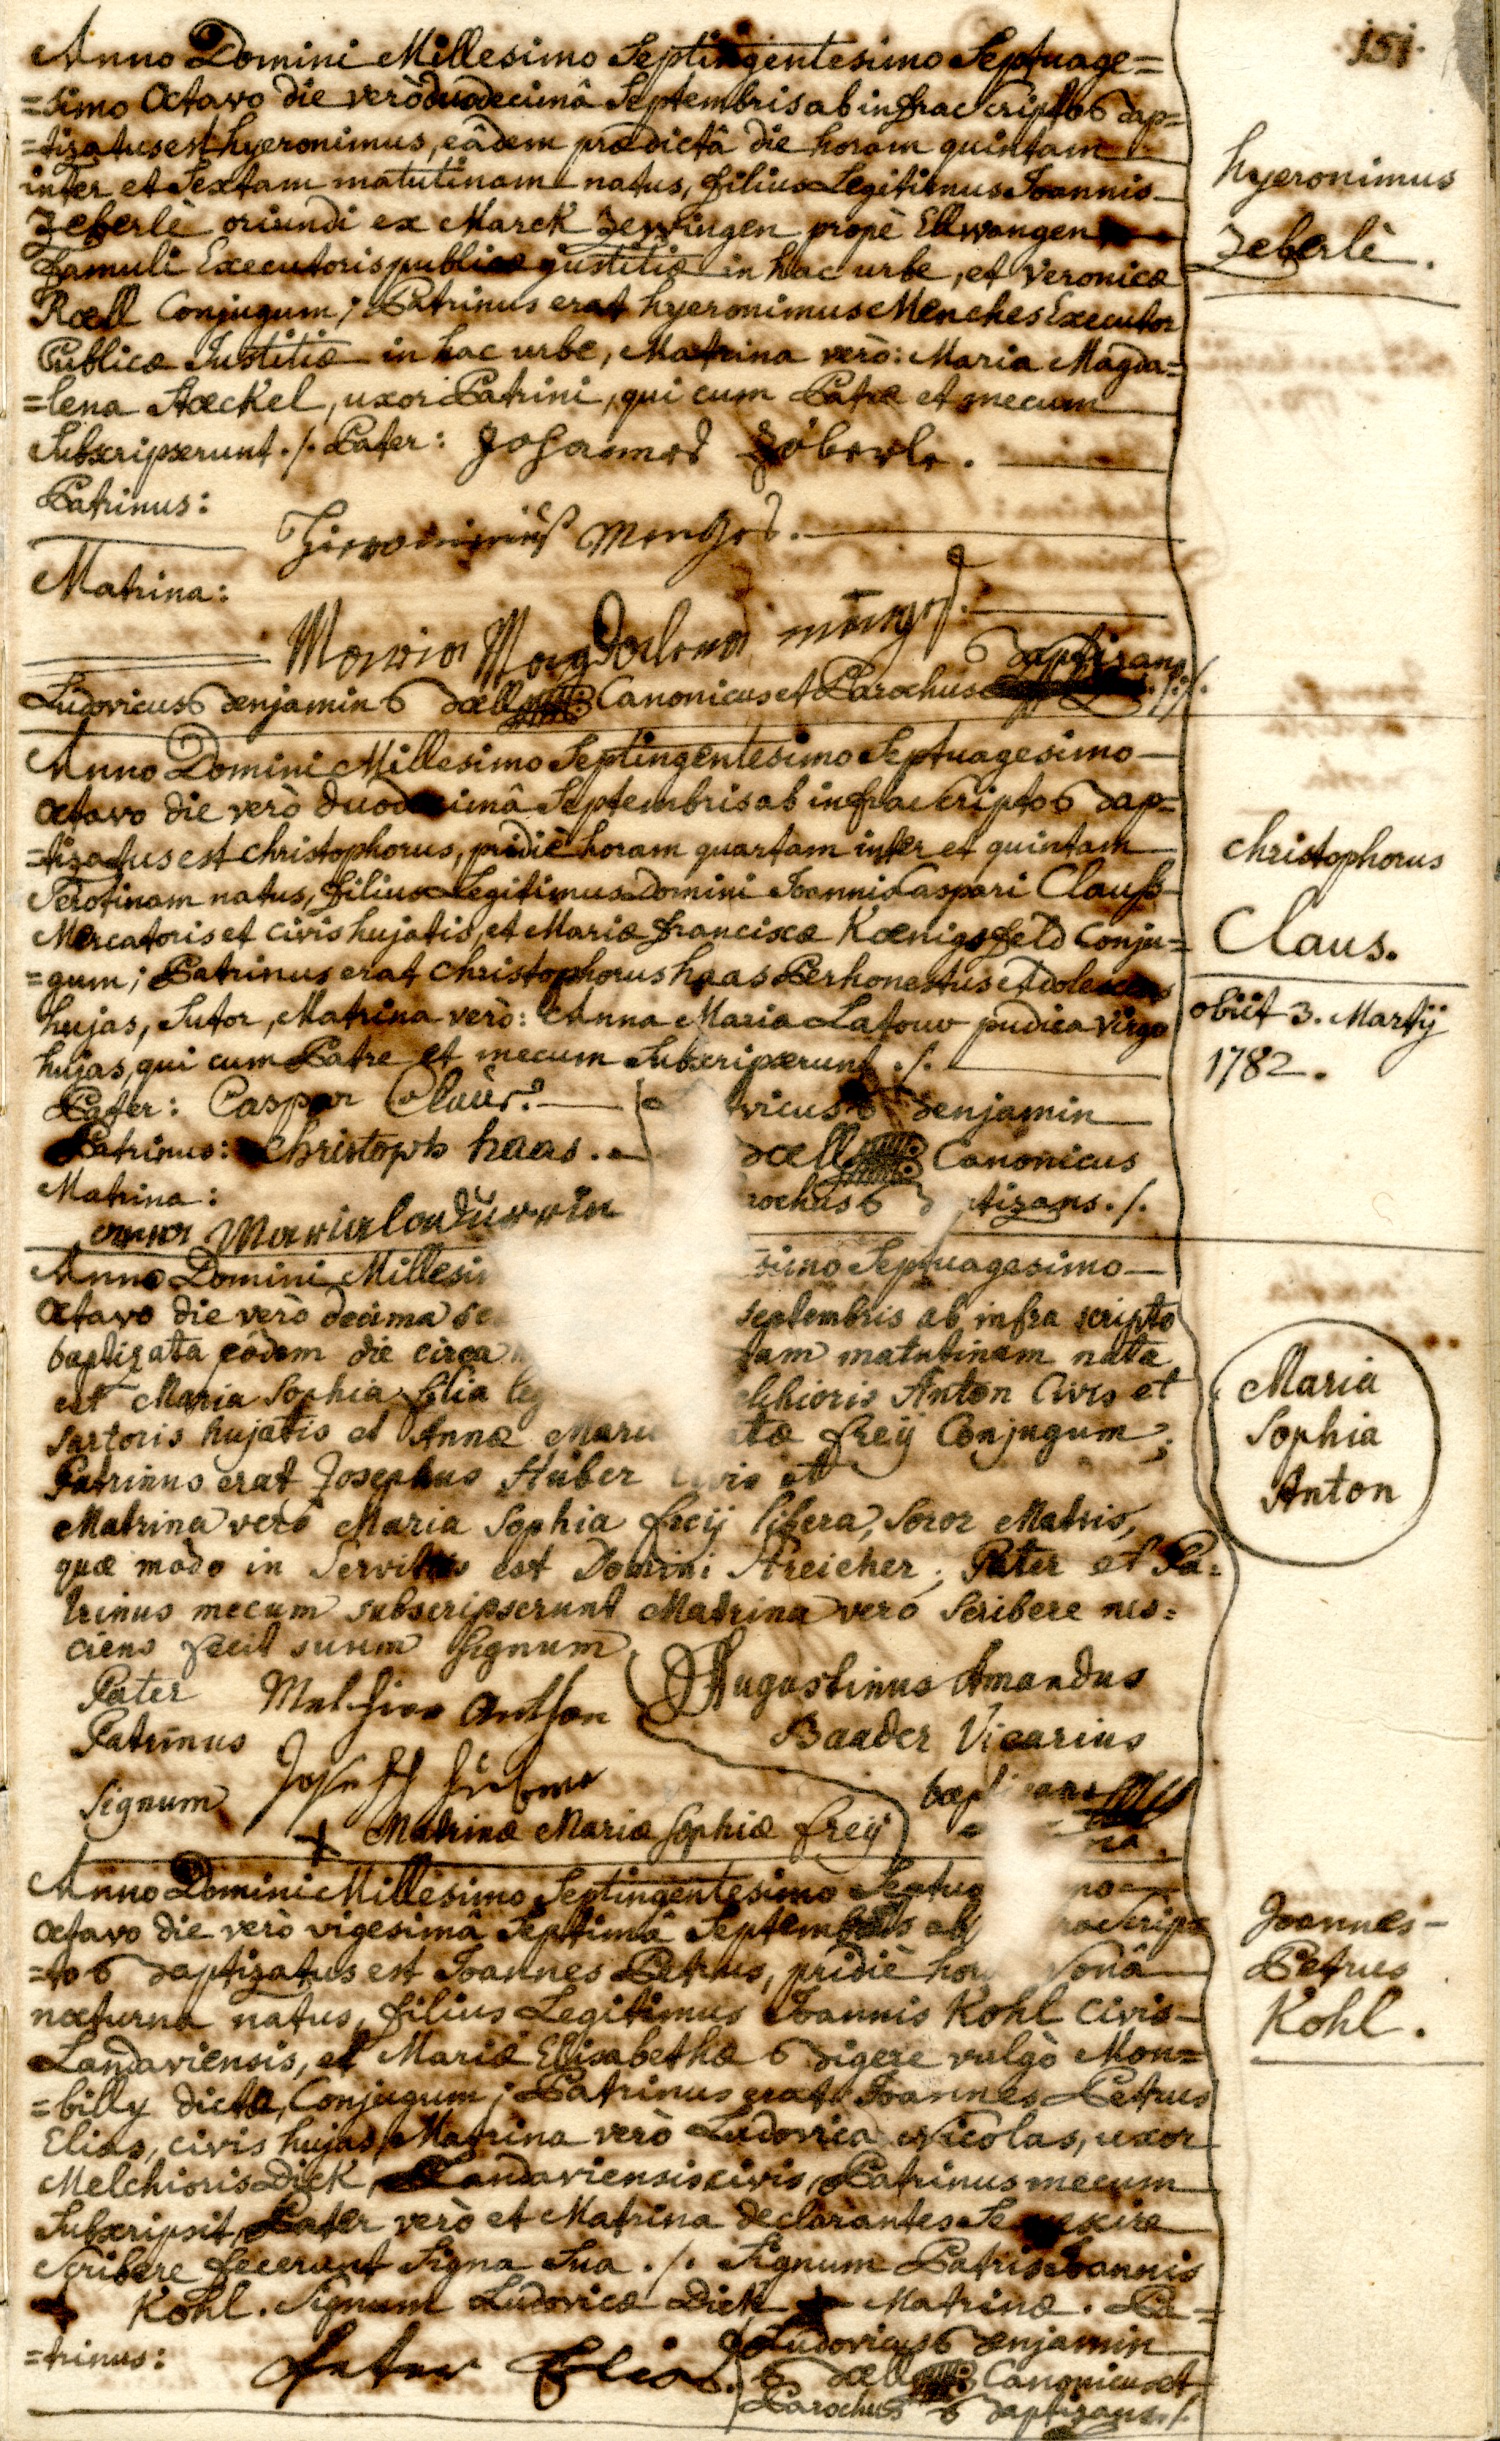 151.
Anno Domini Millesimo Septingentesimo Septuage=
=simo Octavo die verò duodecimâ Septembris ab infrascripto Bap=
=tizatus est hyeronimus, eâdem prædictâ die horam quintam
inter et Sextam matutinam natus, filius Legitimus Joannis
Zeberlè oriundi ex Marck Zewingen propè Ellwangen
famuli Executoris publicæ justitiæ in hac urbe, et Veronicæ
Roell Conjugum; Patrinus erat hyeronimus Menches Executor
Publicæ Justitiæ in hac urbe, Matrina verò: Maria Magda=
=lena Stoeckel, uxor Patrini, qui cum Patre et mecum
Subscripserunt ./. Pater: Johannes Zöberle.
Patrinus:
Hieronimus Menges.
Matrina:
Maria Magdalena menges.
Baptizans
Ludovicus Benjamin Boell Canonicus et Parochus ./.
hyeronimus
Zeberlè.
Anno Domini Millesimo Septingentesimo Septuagesimo
octavo die verò duodecimâ Septembris ab infrascripto Bap=
=tizatus est christophorus, pridiè horam quartam inter et quintam
Serotinam natus, filius Legitimus Domini Joannis Caspari Clauss
Mercatoris et civis hujatis, et Mariæ franciscæ Koenigsfeld Conju=
=gum; Patrinus erat christophorus haas Perhonestus adolescens
hujas, Sutor, Matrina verò: Anna Maria Latour pudica virgo
hujas, qui cum Patre et mecum Subscripserunt ./.
Pater: Caspar Claus. vicus Benjamin
Patrinus: Christoph haas. Boell Canonicus
Matrina: rochus B tizans ./.
anna Maria laduerrin
christophorus
Claus.
obiit 3. Martij
1782.
Anno Domini Millesi simo Septuagesimo
Octavo die verò decima se septembris ab infra scripto
baptizata eódem die circa tam matutinam nata
est Maria Sophia filia leg elchioris Anton Civis et
Sartoris hujatis et Annæ Mari atæ freij Conjugum;
Patrinus erat Josephus Huber Civis et
Matrina verò Maria Sophia freij libera, Soror Matris,
quæ modo in Servitiis est Domini Streicher; Pater et Pa=
trinus mecum subscripserunt Matrina verò Scribere nes=
ciens fecit suum Signum
Pater Melchior Anthon Augustinus Amandus
Patrinus Baader Vicarius
Joseph Huber bap ans
Signum + Matrinæ Mariæ Sophiæ freij
Maria
Sophia
Anton
Anno Domini Millesimo Septingentesimo Septuag mo
octavo die verò vigesimâ Septimâ Septembris ab rascrip=
=to Baptizatus est Joannes Petrus, pridiè hor Nonâ
nocturna natus, filius Legitimus Joannis Kohl civis
Landaviensis, et Mariæ Elisabethæ Bigere vulgò Mon=
=billy dicta, Conjugum; Patrinus erat Joannes Petrus
Elias, civis hujas, Matrina verò Ludovica Nicolas, uxor
Melchioris Dick, Landaviensis civis, Patrinus mecum
Subscripsit, Pater verò et Matrina declarantes Se nescire
Scribere fecerunt Signa Sua ./. Signum Patris Joannis
+ Kohl. Signum Ludovicæ Dick + Matrinæ. Pa=
=trinus: Peter Elias. Ludovicus Benjamin
Boell Canonicus et
Parochus Baptizans ./.
Joannes
Petrus
Kohl.